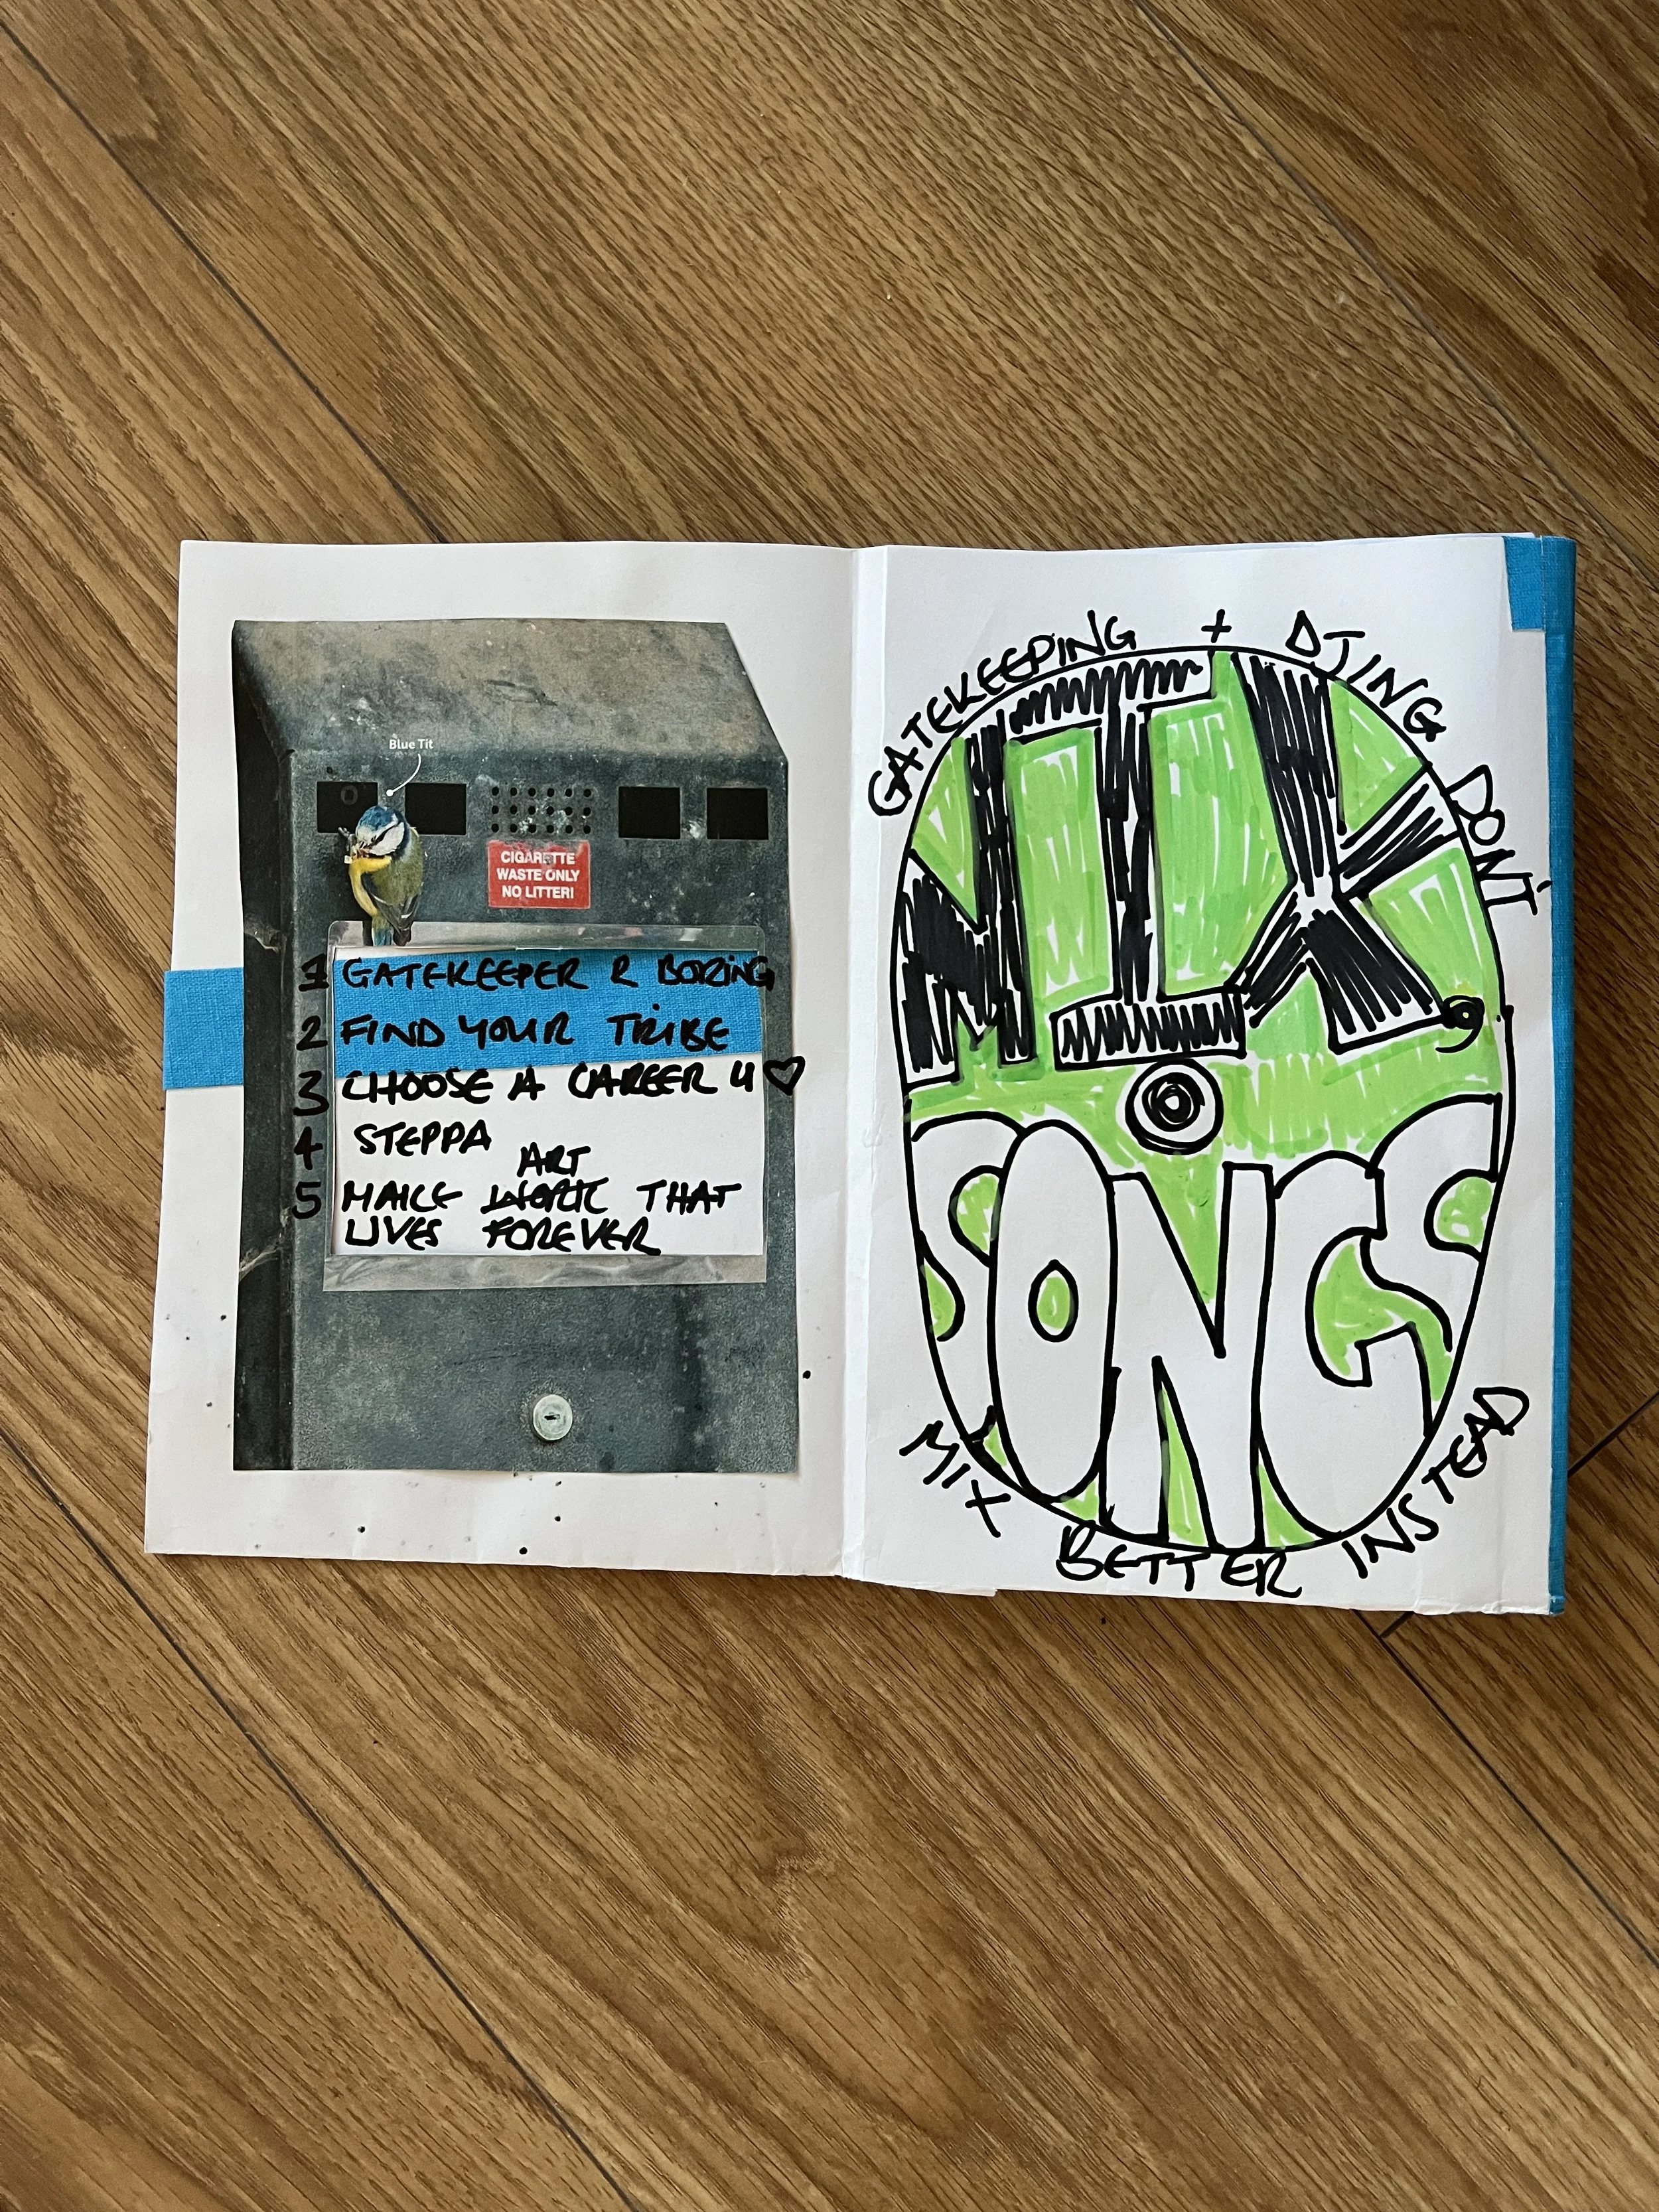 Blue Tit
CIGARETTE
WASTE ONLY
NO LITTER!
1 GATEKEEPER R BORING
2 FIND YOUR TRIBE
3 CHOOSE A CAREER U ♡
4 STEPPA
ART
5 MAKE WORK THAT
LIVES FOREVER
GATEKEEPING + DJING DON'T
MIX
SONGS
MIX BETTER INSTEAD